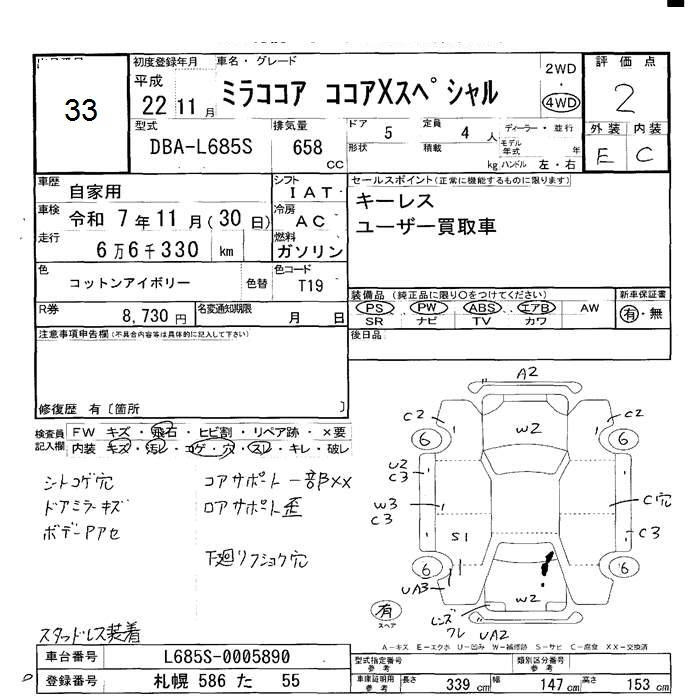 33
初度登録年月 車名・グレード
平成
22 11 月
ミラココア ココアXスペシャル
2WD
4WD
評価点
2
外装 内装
E C
型式 排気量 ドア 5 定員 4 人 ディーラー・並行
DBA-L685S 658 CC
形状 積載 kg モデル年式 年
ハンドル 左・右
車歴 自家用
シフト IAT
車検 令和 7年11月(30日)
冷房 AC
走行 6万6千330 km
燃料 ガソリン
セールスポイント(正常に機能するものに限ります)
キーレス
ユーザー買取車
色 コットンアイボリー 色替
色コード T19
R券 8,730 円 名変通知期限 月 日
装備品(純正品に限り○をつけてください)
PS PW ABS エアB AW
SR ナビ TV カワ
新車保証書
有・無
注意事項申告欄(不具合内容等は具体的に記入して下さい)
後日品
修復歴 有〔箇所 〕
検査員記入欄
FW キズ・飛石・ヒビ割・リペア跡・×要
内装 キズ・汚レ・コゲ・穴・スレ・キレ・破レ
シトコゲ穴
ドアミラーキズ
ボデーPアセ
コアサポート一部XX
ロアサポート歪
下廻リフショク穴
スタッドレス装着
A2
C2 W2 C2
6 6
U2
C3
W3
C3
C穴
S1
C3
6 6
UA3
W2
有
スペア
レンズ
ワレ
UA2
A-キズ E-エクボ U-凹み W-補修跡 S-サビ C-腐食 XX-交換済
車台番号 L685S-0005890
登録番号 札幌 586 た 55
型式指定番号 参考
類別区分番号 参考
車庫証明用 参考 長さ 339 cm 幅 147 cm 高さ 153 cm